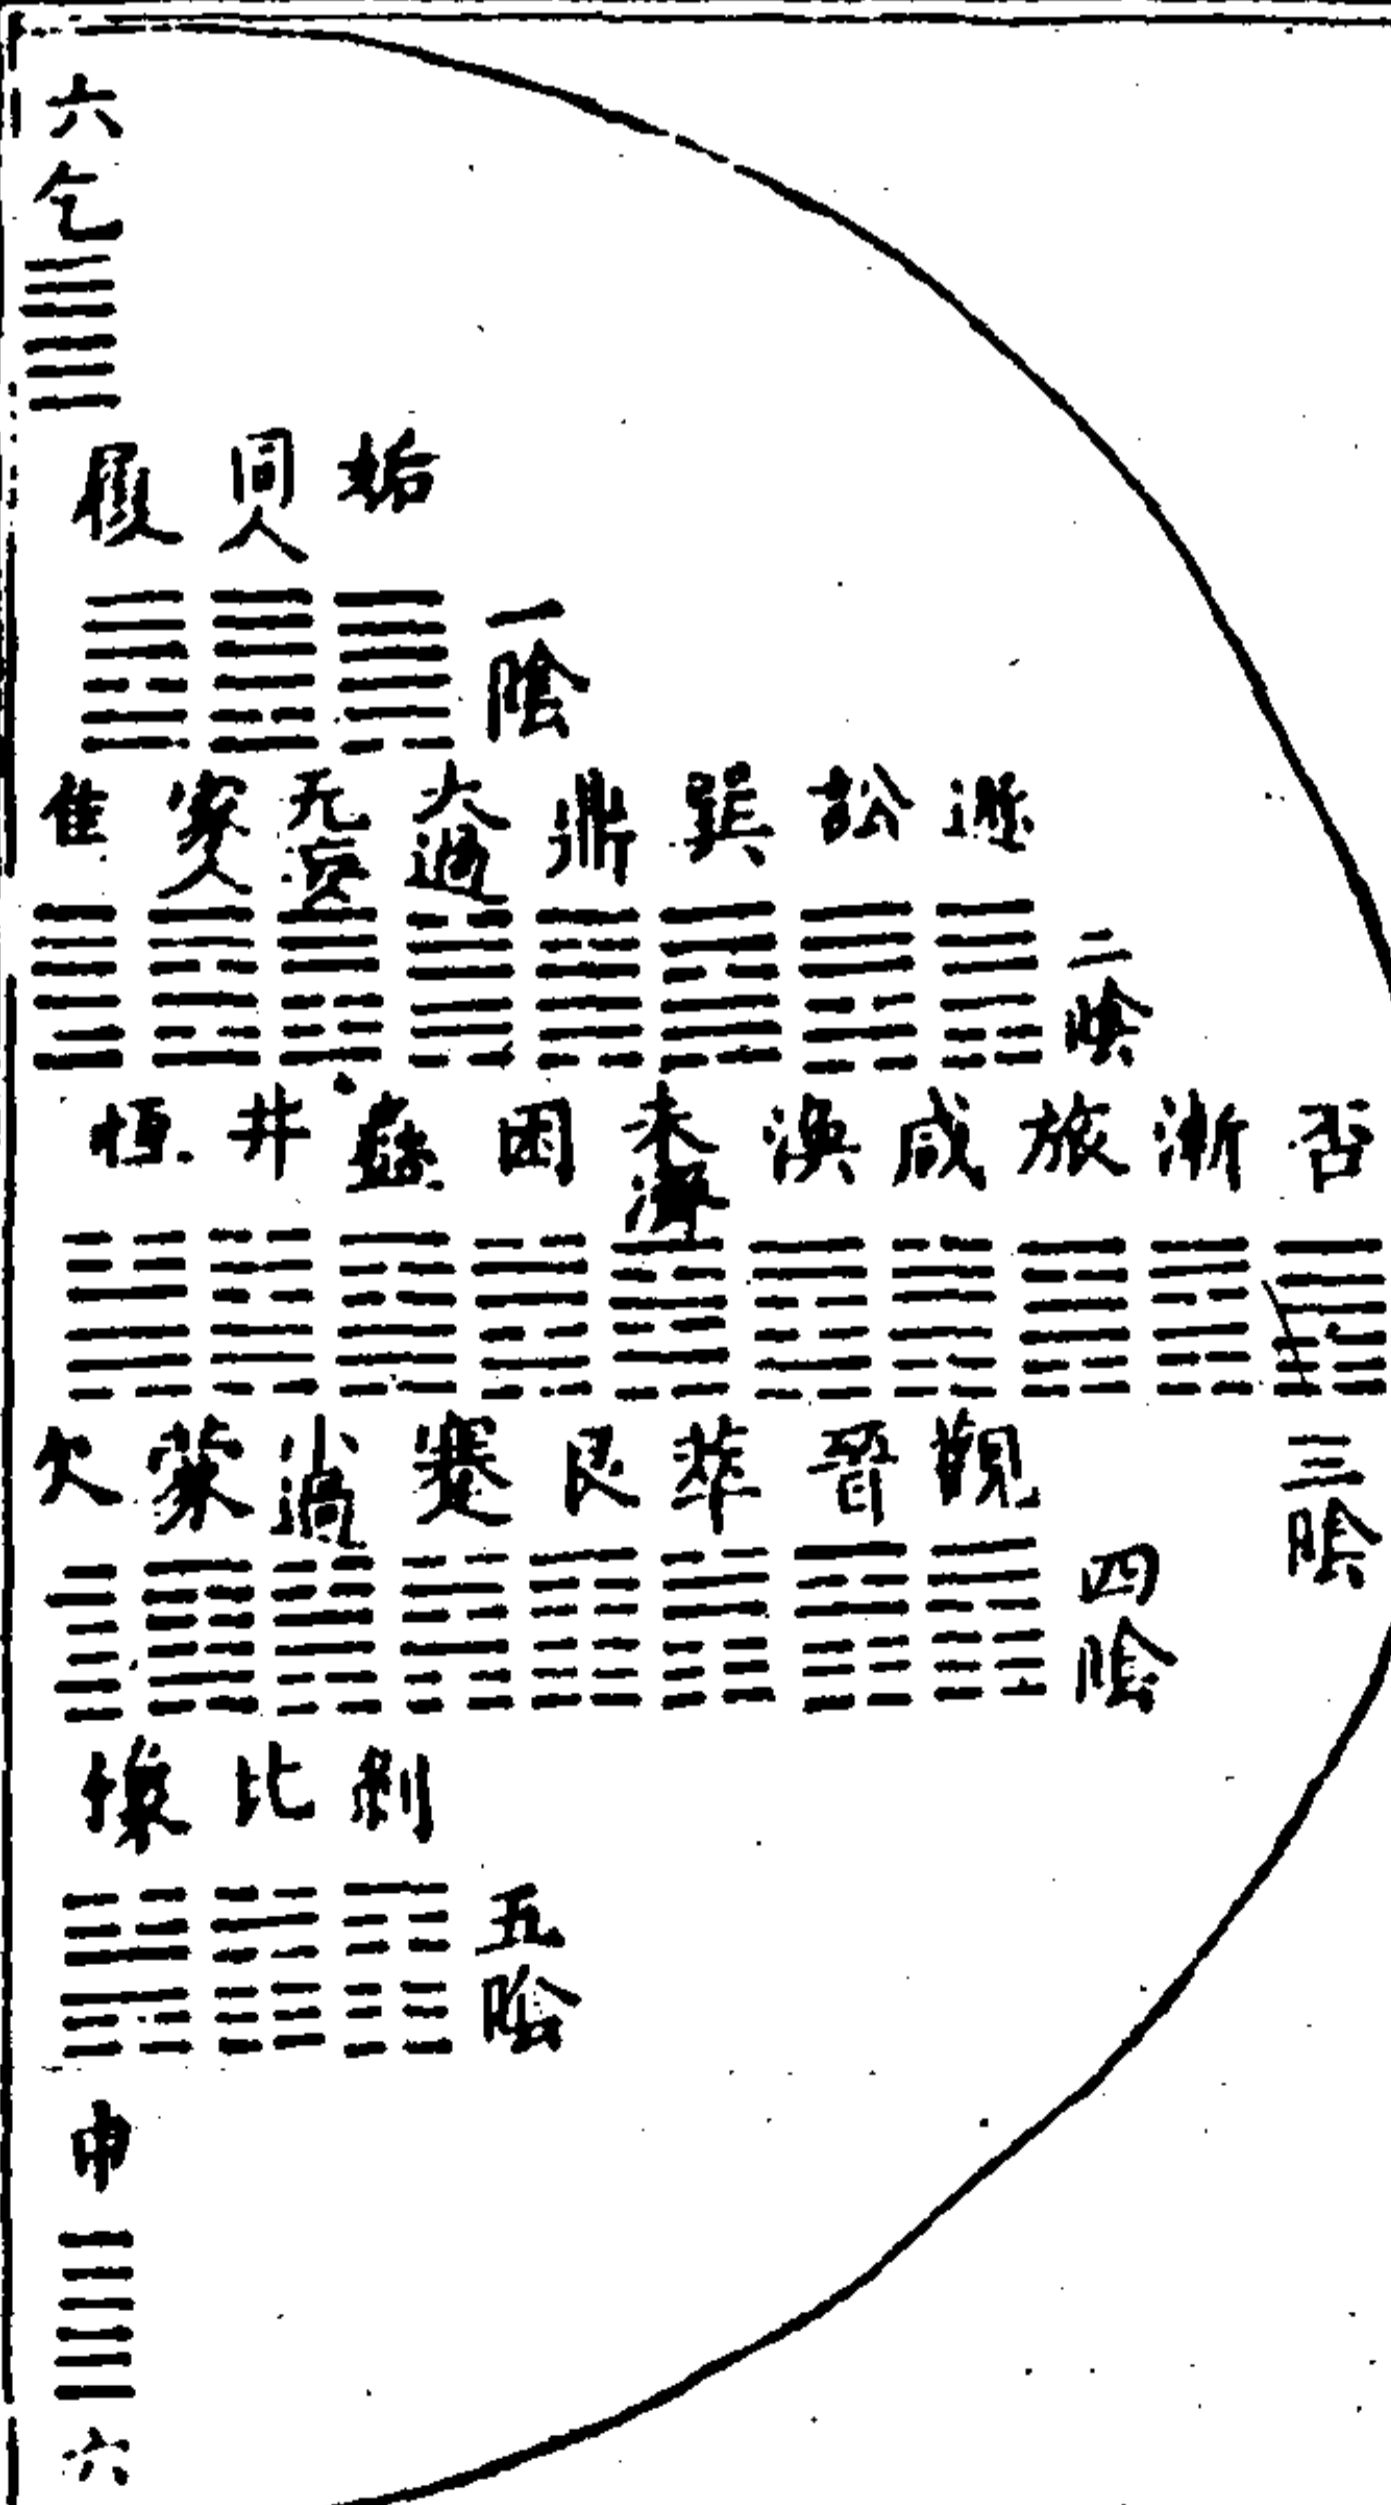 六乞
一陰 姤 同人 履
二陰 遯 訟 巽 鼎 大過 无妄 家人 隹
否 漸 旅 咸 渙 未濟 困 蠱 井 恒
三陰
四陰 觀 晉 萃 艮 蹇 小過 蒙 欠
五陰 剝 比
申
六